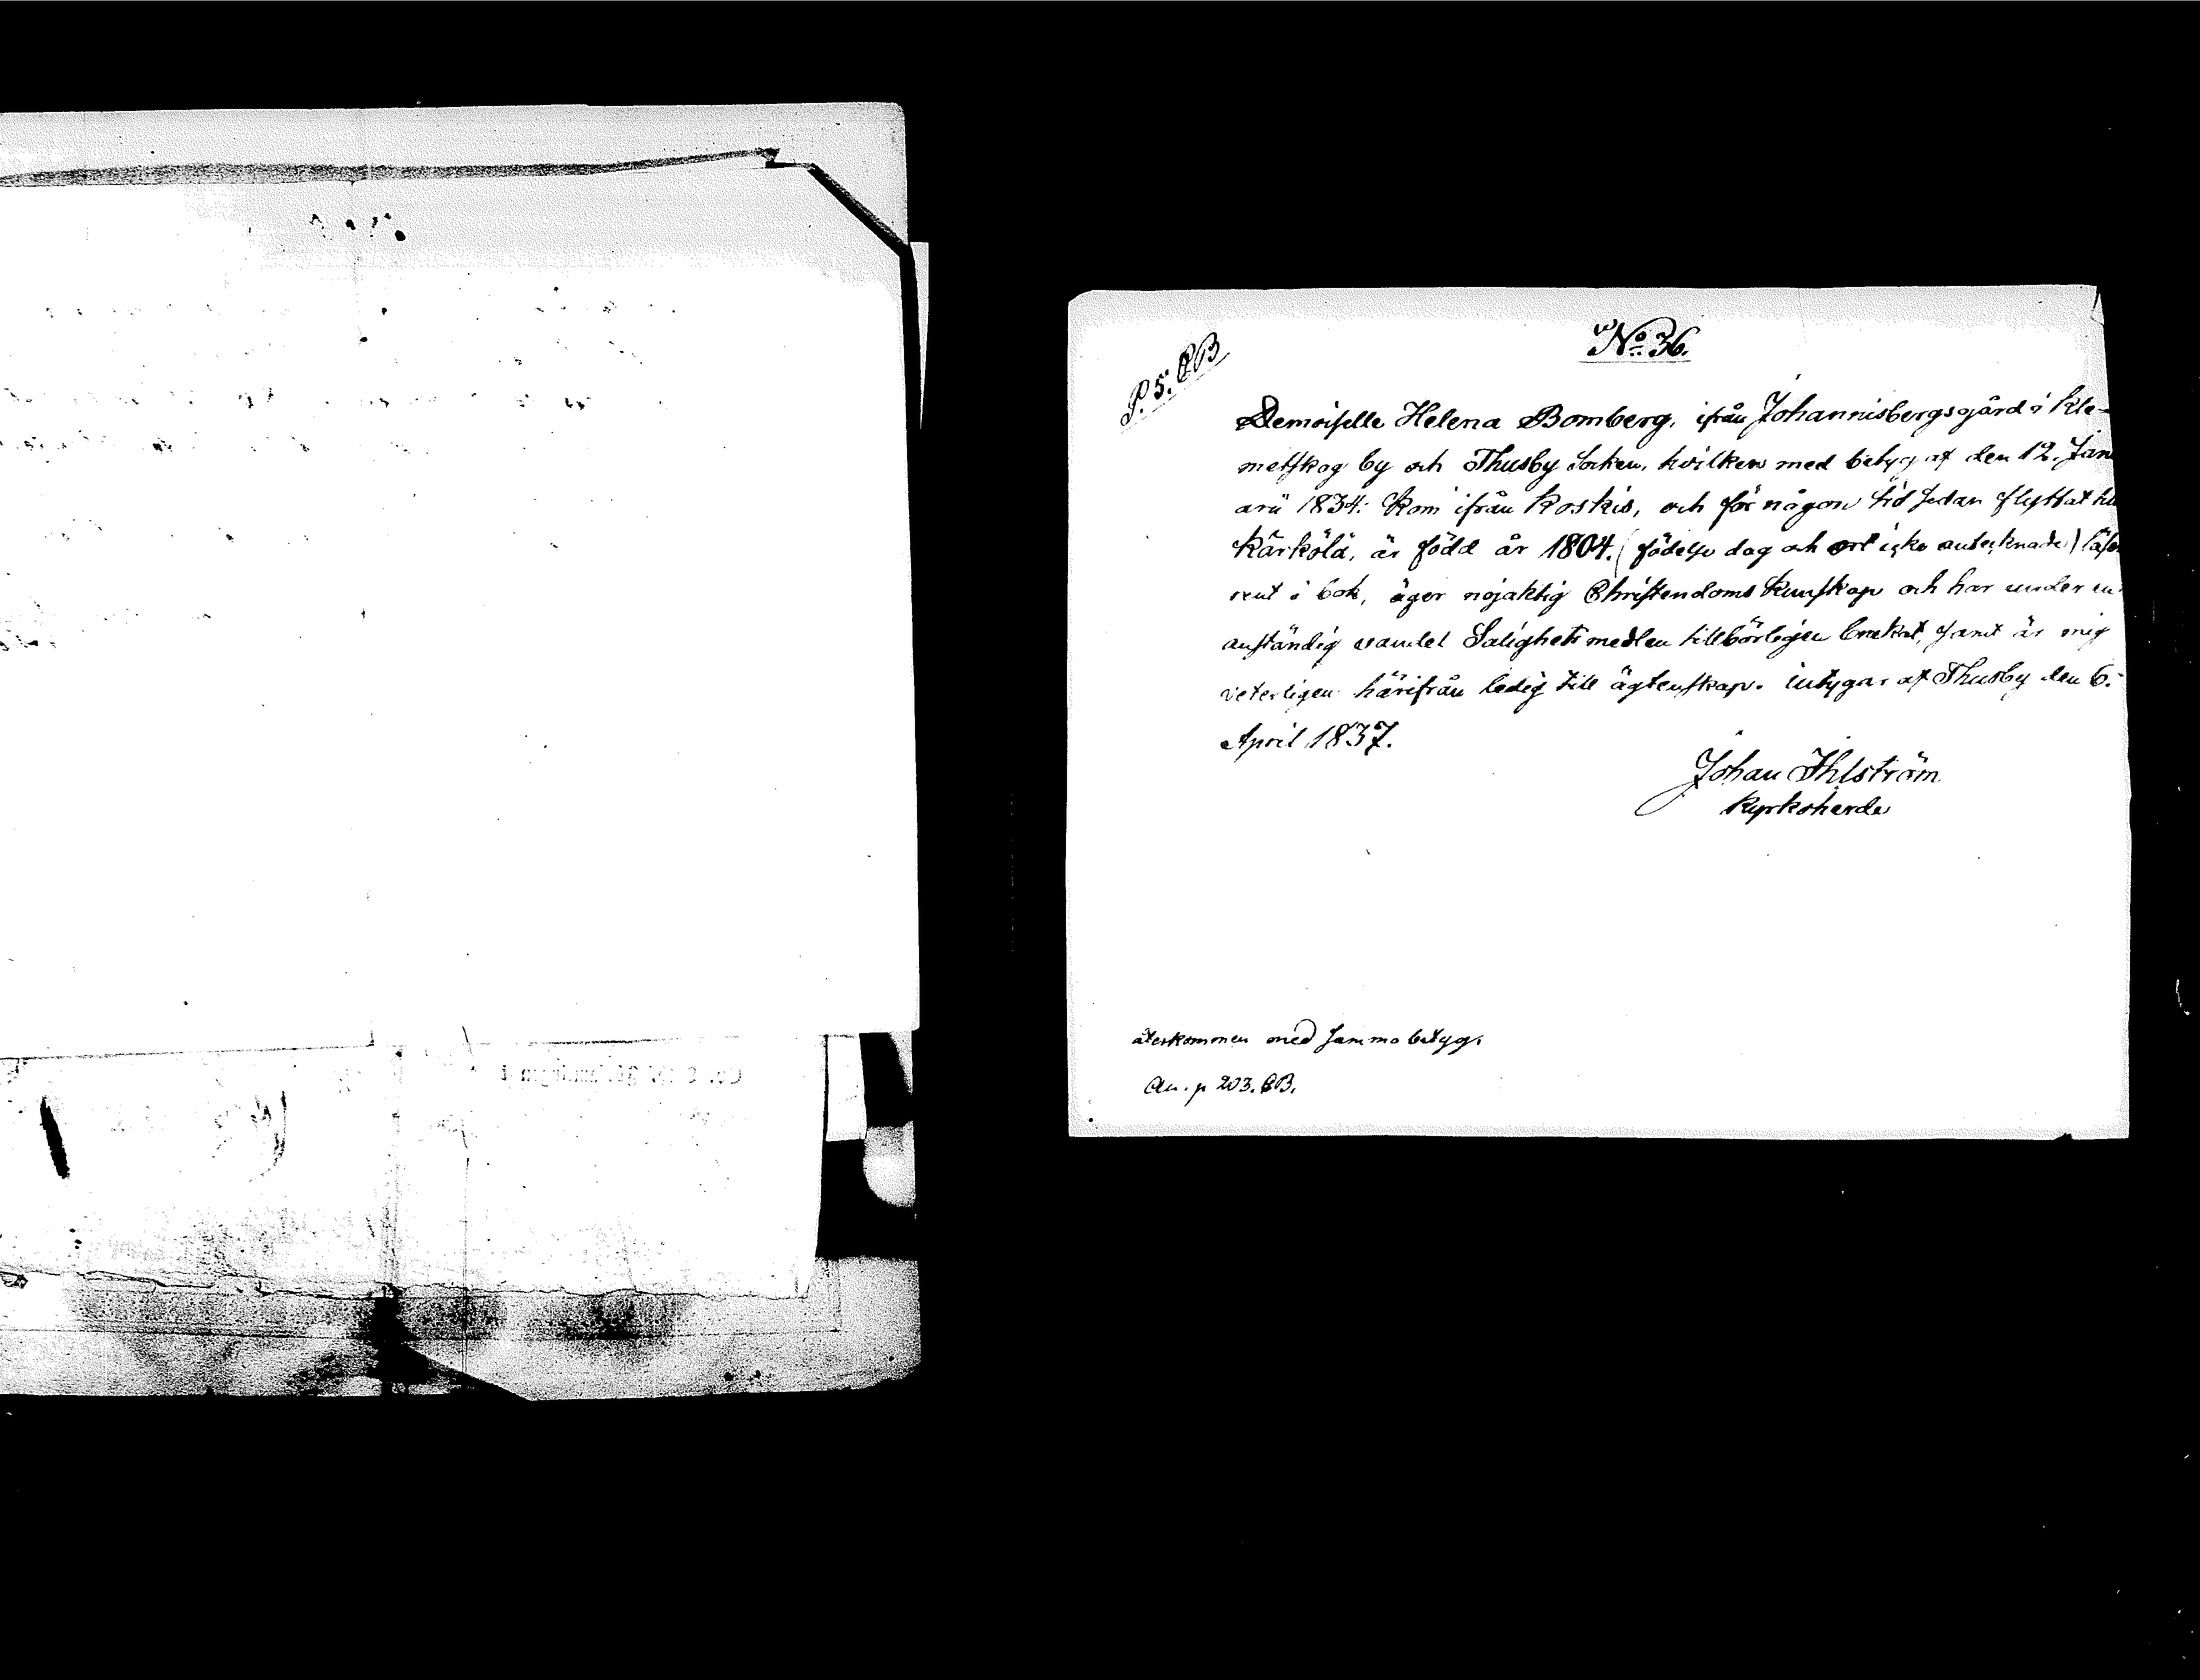 No. 36.
P. 5. CB
Demoiselle Helena Bomberg, ifrån Johannisbergs gård i Kle-
metskog by och Thusby Socken, hvilken med betyg af den 12. Janu
arii 1834. kom ifrån Koskis, och för någon tid sedan flyttat till
Kärkölä, är född år 1804. (födelse dag och ort icke antecknade) läser
rent i bok, äger nöjaktig Christendoms kunskap och har under en
anständig vandel Salighets medlen tillbörligen brukat, samt är mig
veterligen härifrån ledig till ägtenskap. intygar af Thusby den 6.
April 1837.
Johan Ihlström
Kyrkoherde
återkommen med samma betyg.
An. p 203. CB.